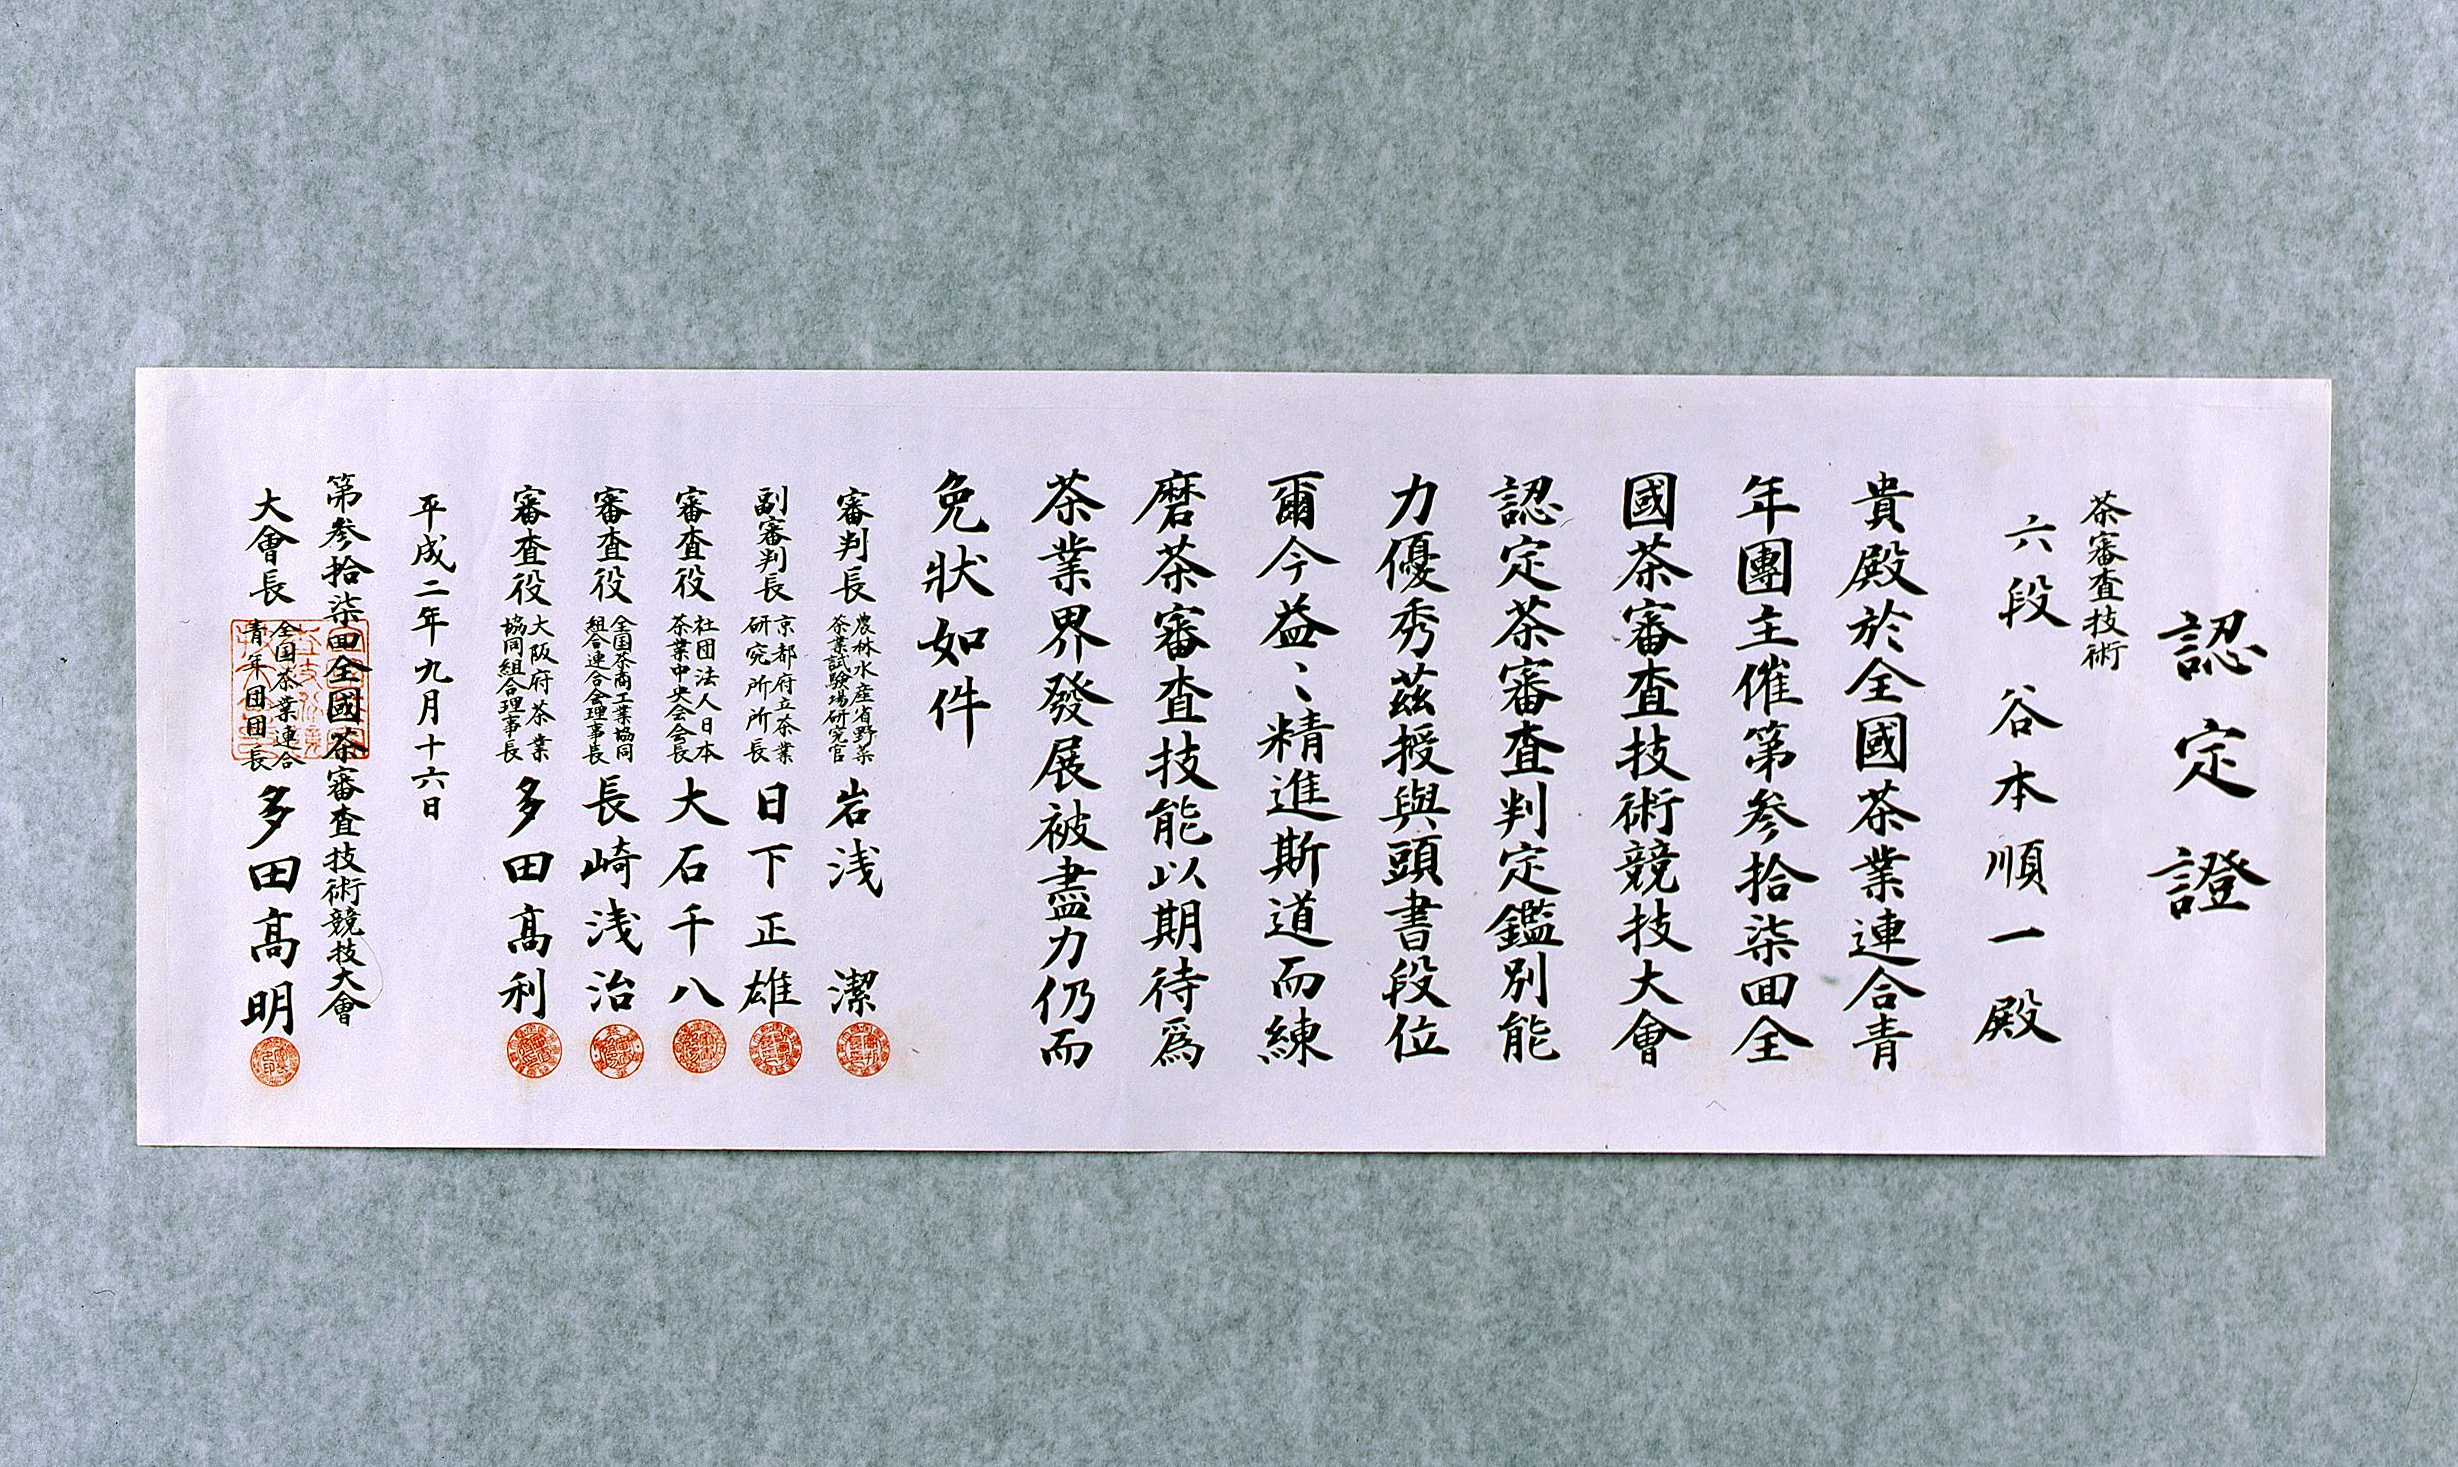 認定證
茶審査技術
六段 谷本順一殿
貴殿於全國茶業連合青
年團主催第参拾柒回全
國茶審査技術競技大會
認定茶審査判定鑑別能
力優秀茲授與頭書段位
爾今益〻精進斯道而練
磨茶審査技能以期待為
茶業界發展被盡力仍而
免状如件
審判長 農林水産省野菜
茶業試験場研究官 岩浅 潔
副審判長 京都府立茶業
研究所所長 日下正雄
審査役 社団法人日本
茶業中央会会長 大石千八
審査役 全国茶商工業協同
組合連合会理事長 長崎浅治
審査役 大阪府茶業
協同組合理事長 多田高利
平成二年九月十六日
第参拾柒回全國茶審査技術競技大會
大會長 全国茶業連合
青年団団長 多田高明